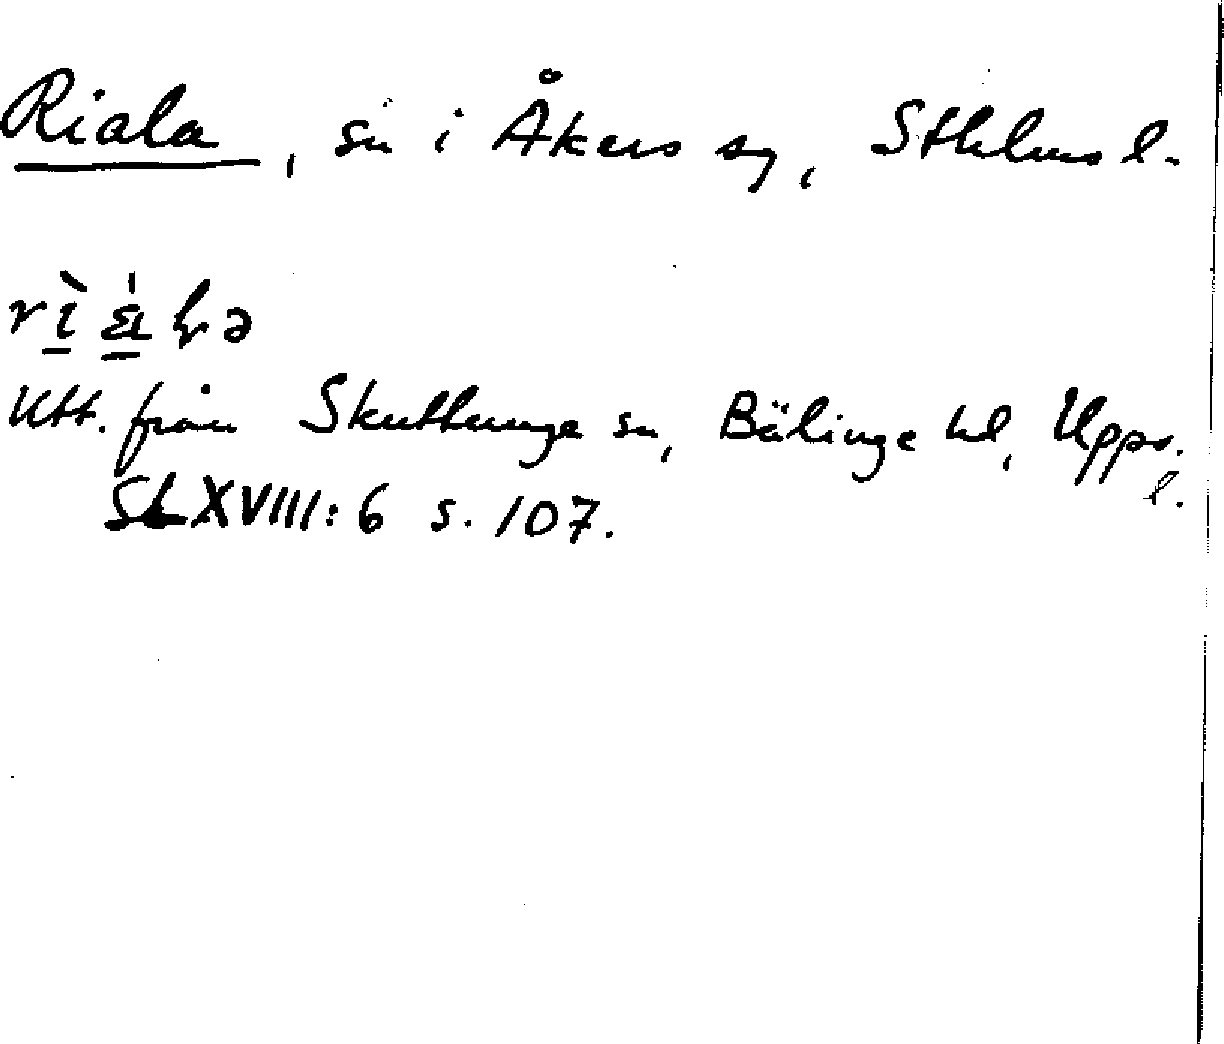 Riala, sn i Åkers sg, Sthlms l.
Utt. från Skuttunge sn, Bälinge hd, Upps.
l.
SL XVIII: 6 s. 107.